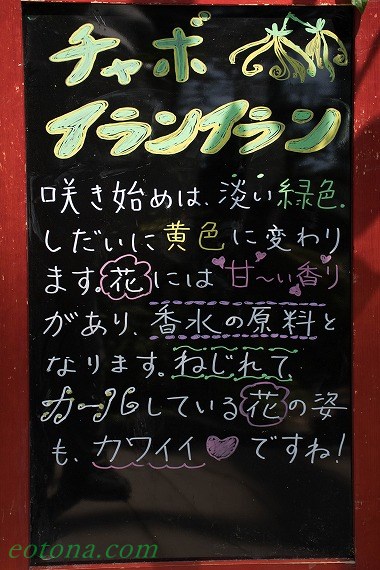 チャボ
イランイラン
咲き始めは、淡い緑色。
しだいに黄色に変わり
ます。花には甘〜い香り
があり、香水の原料と
なります。ねじれて
カールしている花の姿
も、カワイイ♥ですね!
eotona.com